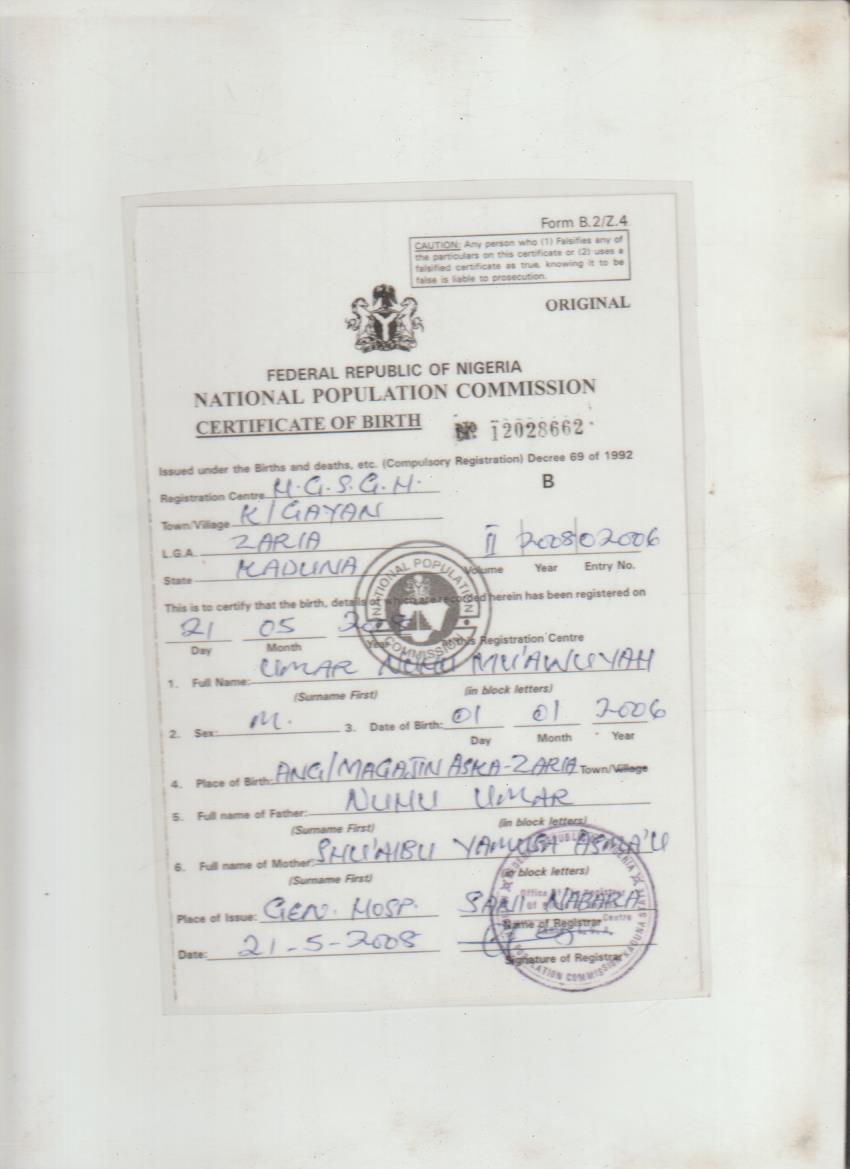 Form B.2/Z.4
CAUTION: Any person who (1) Falsifies any of
the particulars on this certificate or (2) uses a
falsified certificate as true, knowing it to be
false is liable to prosecution.
ORIGINAL
FEDERAL REPUBLIC OF NIGERIA
NATIONAL POPULATION COMMISSION
CERTIFICATE OF BIRTH No. 12028662
Issued under the Births and deaths, etc. (Compulsory Registration) Decree 69 of 1992
Registration Centre H.G.S.G.H. B
Town/Village K/GAYAN
L.G.A. ZARIA II 2008 02006
State KADUNA Volume Year Entry No.
NATIONAL POPULATION COMMISSION
This is to certify that the birth, details of which are recorded herein has been registered on
21 05 2008
Day Month Year at this Registration Centre
1. Full Name: UMAR NUHU MU'AWUYAH
(Surname First) (in block letters)
2. Sex: M. 3. Date of Birth: 01 01 2006
Day Month Year
4. Place of Birth: ANG/MAGAJIN ASKA-ZARIA Town/Village
5. Full name of Father: NUHU UMAR
(Surname First) (in block letters)
6. Full name of Mother: SHU'AIBU YAHUSA ASMA'U
(Surname First) (in block letters)
Place of Issue: GEN. HOSP. SANI NABARA
Name of Registrar
Date: 21-5-2008
Signature of Registrar